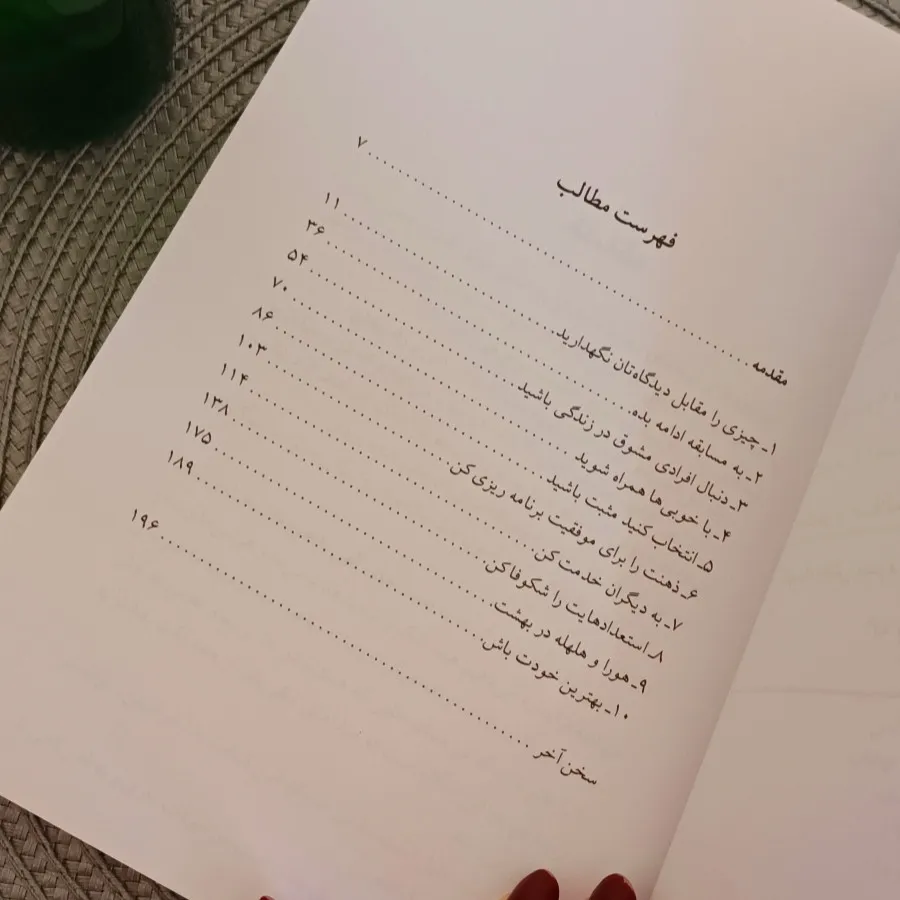 فهرست مطالب
مقدمه ........ ۷
۱ـ چیزی را مقابل دیدگاه‌تان نگهدارید ........ ۱۱
۲ـ به مسابقه ادامه بده ........ ۳۶
۳ـ دنبال افرادی مشوق در زندگی باشید ........ ۵۴
۴ـ با خوبی‌ها همراه شوید ........ ۷۰
۵ـ انتخاب کنید مثبت باشید ........ ۸۶
۶ـ ذهنت را برای موفقیت برنامه ریزی کن ........ ۱۰۳
۷ـ به دیگران خدمت کن ........ ۱۱۴
۸ـ استعدادهایت را شکوفا کن ........ ۱۳۸
۹ـ هورا و هلهله در بهشت ........ ۱۷۵
۱۰ـ بهترین خودت باش ........ ۱۸۹
سخن آخر ........ ۱۹۶